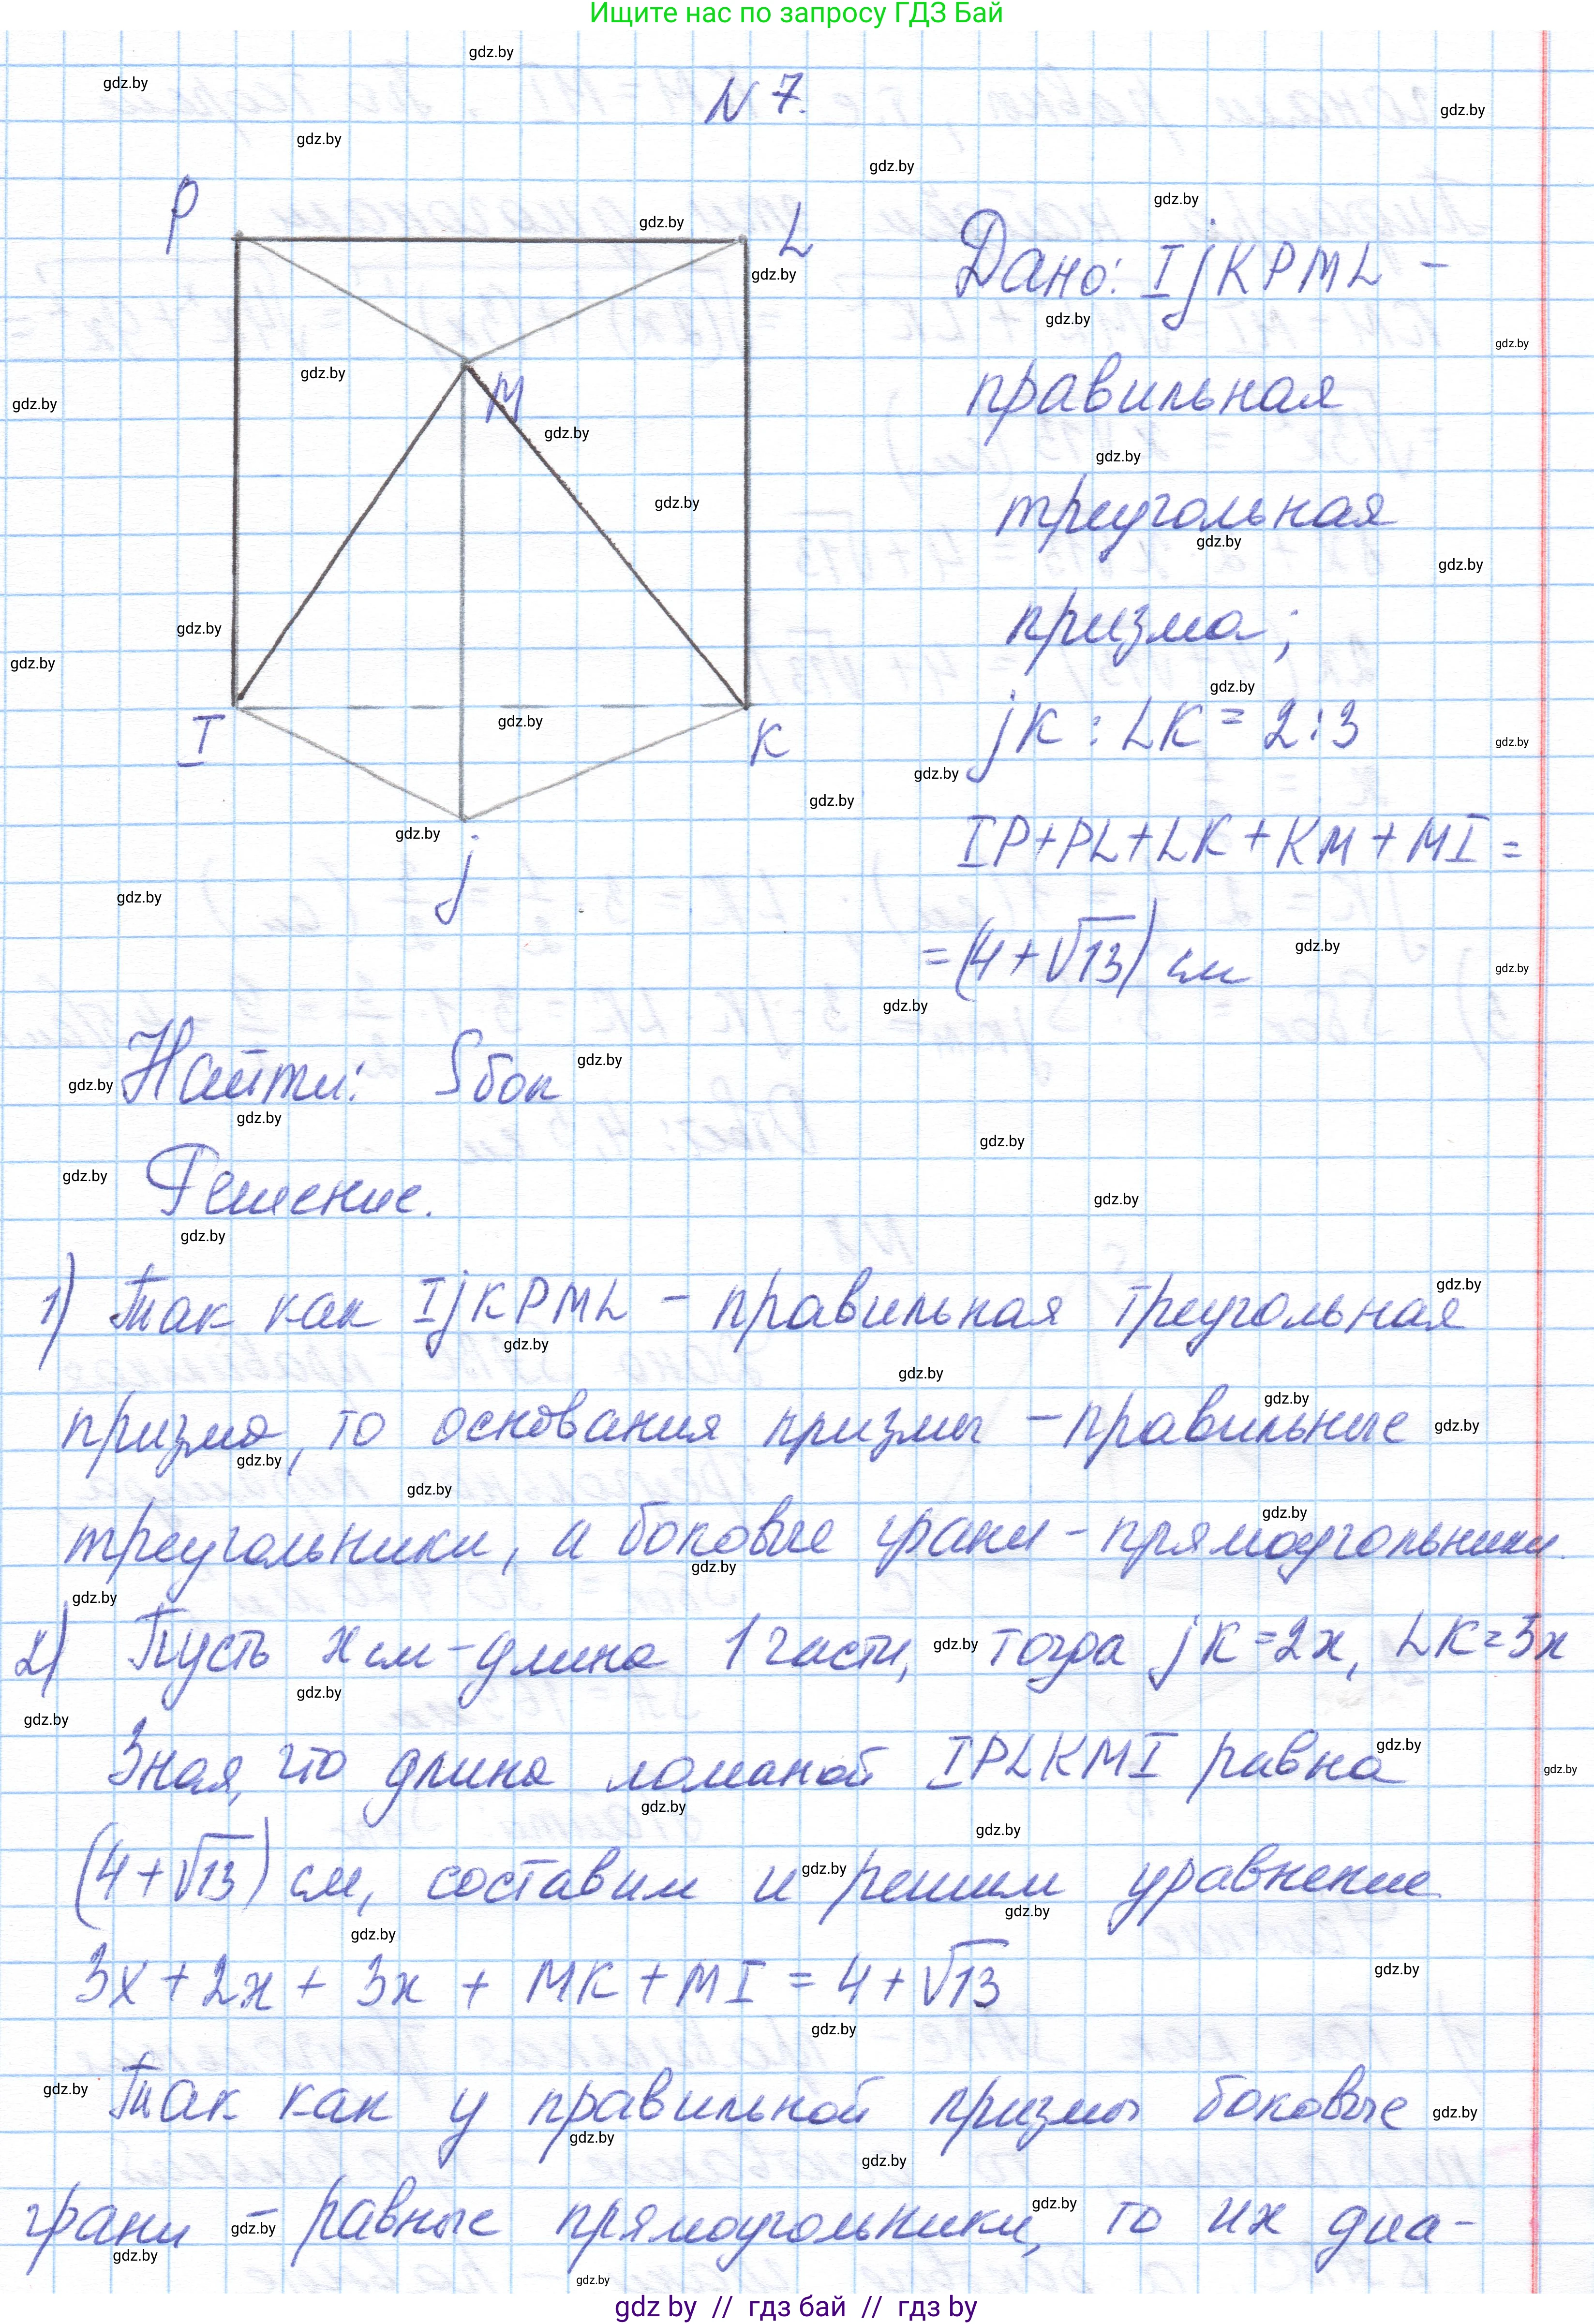 Ищите нас по запросу ГДЗ Бай
N 7.
P
L
M
I
K
j
Дано: IjKPML -
правильная
треугольная
призма;
jK : LK = 2:3
IP+PL+LK+KM+MI =
= (4+√13) см
Найти: Sбок
Решение.
1) Так как IjKPML - правильная треугольная
призма, то основания призмы - правильные
треугольники, а боковые грани - прямоугольники.
2) Пусть x см - длина 1 части, тогда jK = 2x, LK = 3x
Зная, что длина ломаной IPLKMI равна
(4+√13) см, составим и решим уравнение
3x + 2x + 3x + MK + MI = 4 + √13
Так как у правильной призмы боковые
грани - равные прямоугольники, то их диа-
gdz by // гдз бай // гдз by